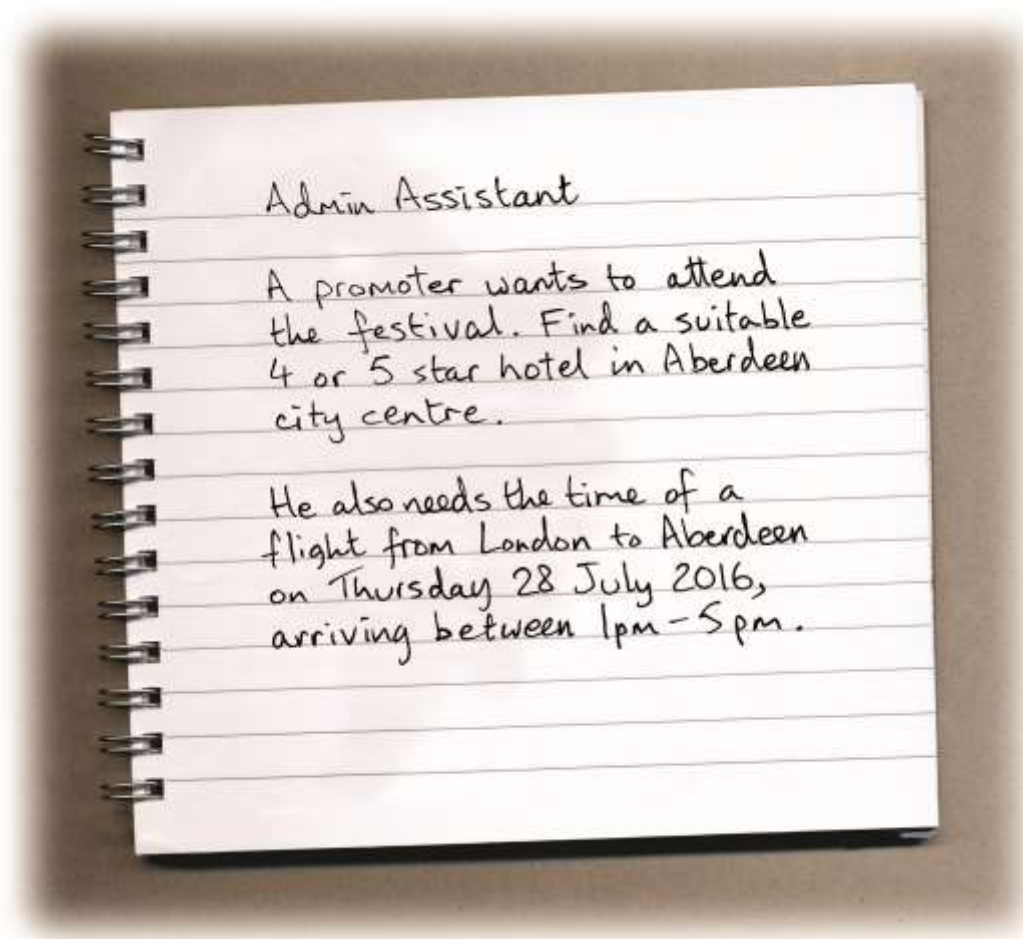 Admin Assistant
A promoter wants to attend
the festival. Find a suitable
4 or 5 star hotel in Aberdeen
city centre.
He also needs the time of a
flight from London to Aberdeen
on Thursday 28 July 2016,
arriving between 1pm - 5pm.